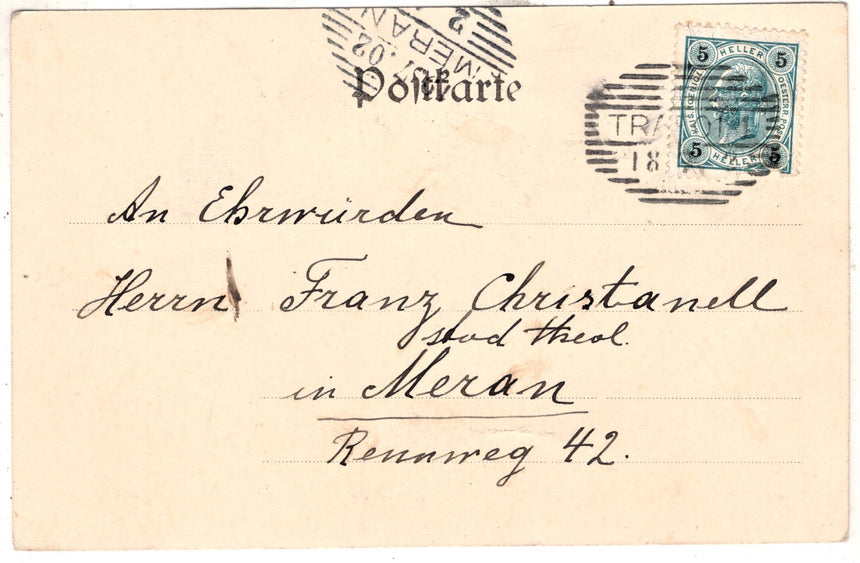 MERAN
7.02
2
Postkarte
5 HELLER 5
OESTERR. POST
5 HELLER 5
18
An Ehrwürden
Herrn Franz Christanell
stud theol.
in Meran
Rennweg 42.